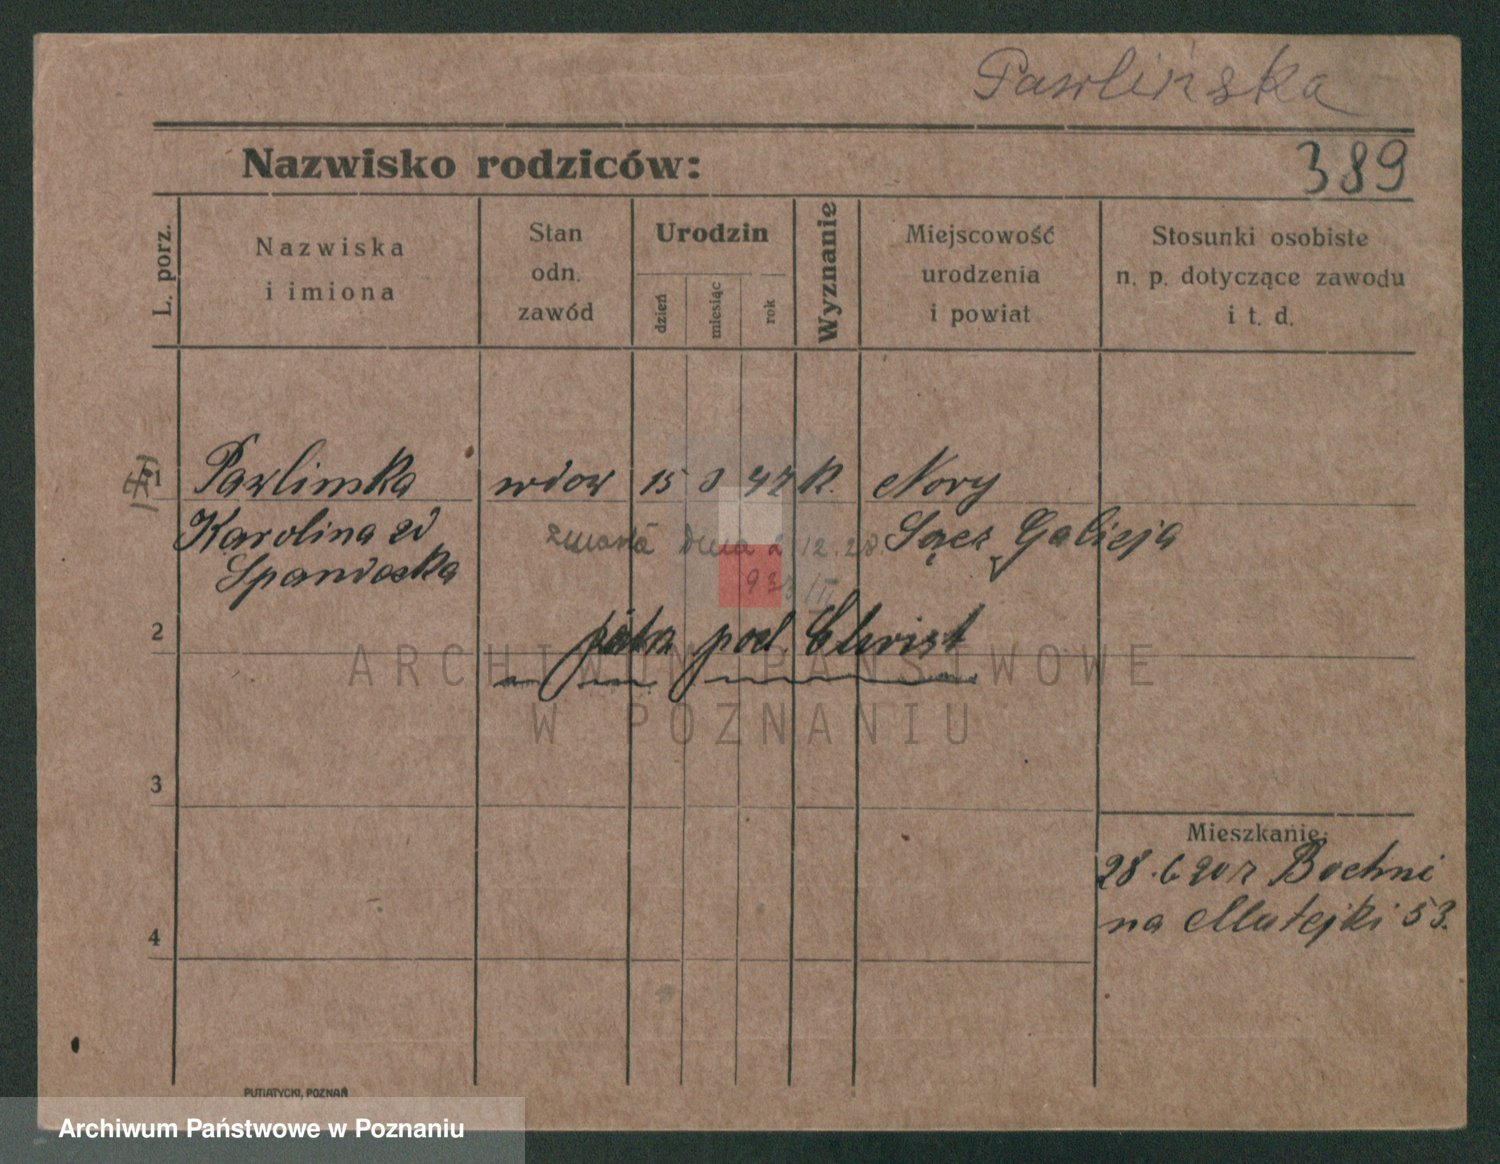 Pawlińska
Nazwisko rodziców:
389
L. porz.
Nazwiska
i imiona
Stan
odn.
zawód
Urodzin
dzień
miesiąc
rok
Wyznanie
Miejscowość
urodzenia
i powiat
Stosunki osobiste
n. p. dotyczące zawodu
i t. d.
1 Pawlinska wdow 15 47 k. Nowy
Karolina zd Sącz Galicja
zmarła dnia 2.12.28.
933/II
2
pod. Christ
ARCHIWUM PAŃSTWOWE
W POZNANIU
3
Mieszkanie:
28.6 20 z Bochni
na Matejki 53.
4
PUTIATYCKI, POZNAŃ
Archiwum Państwowe w Poznaniu